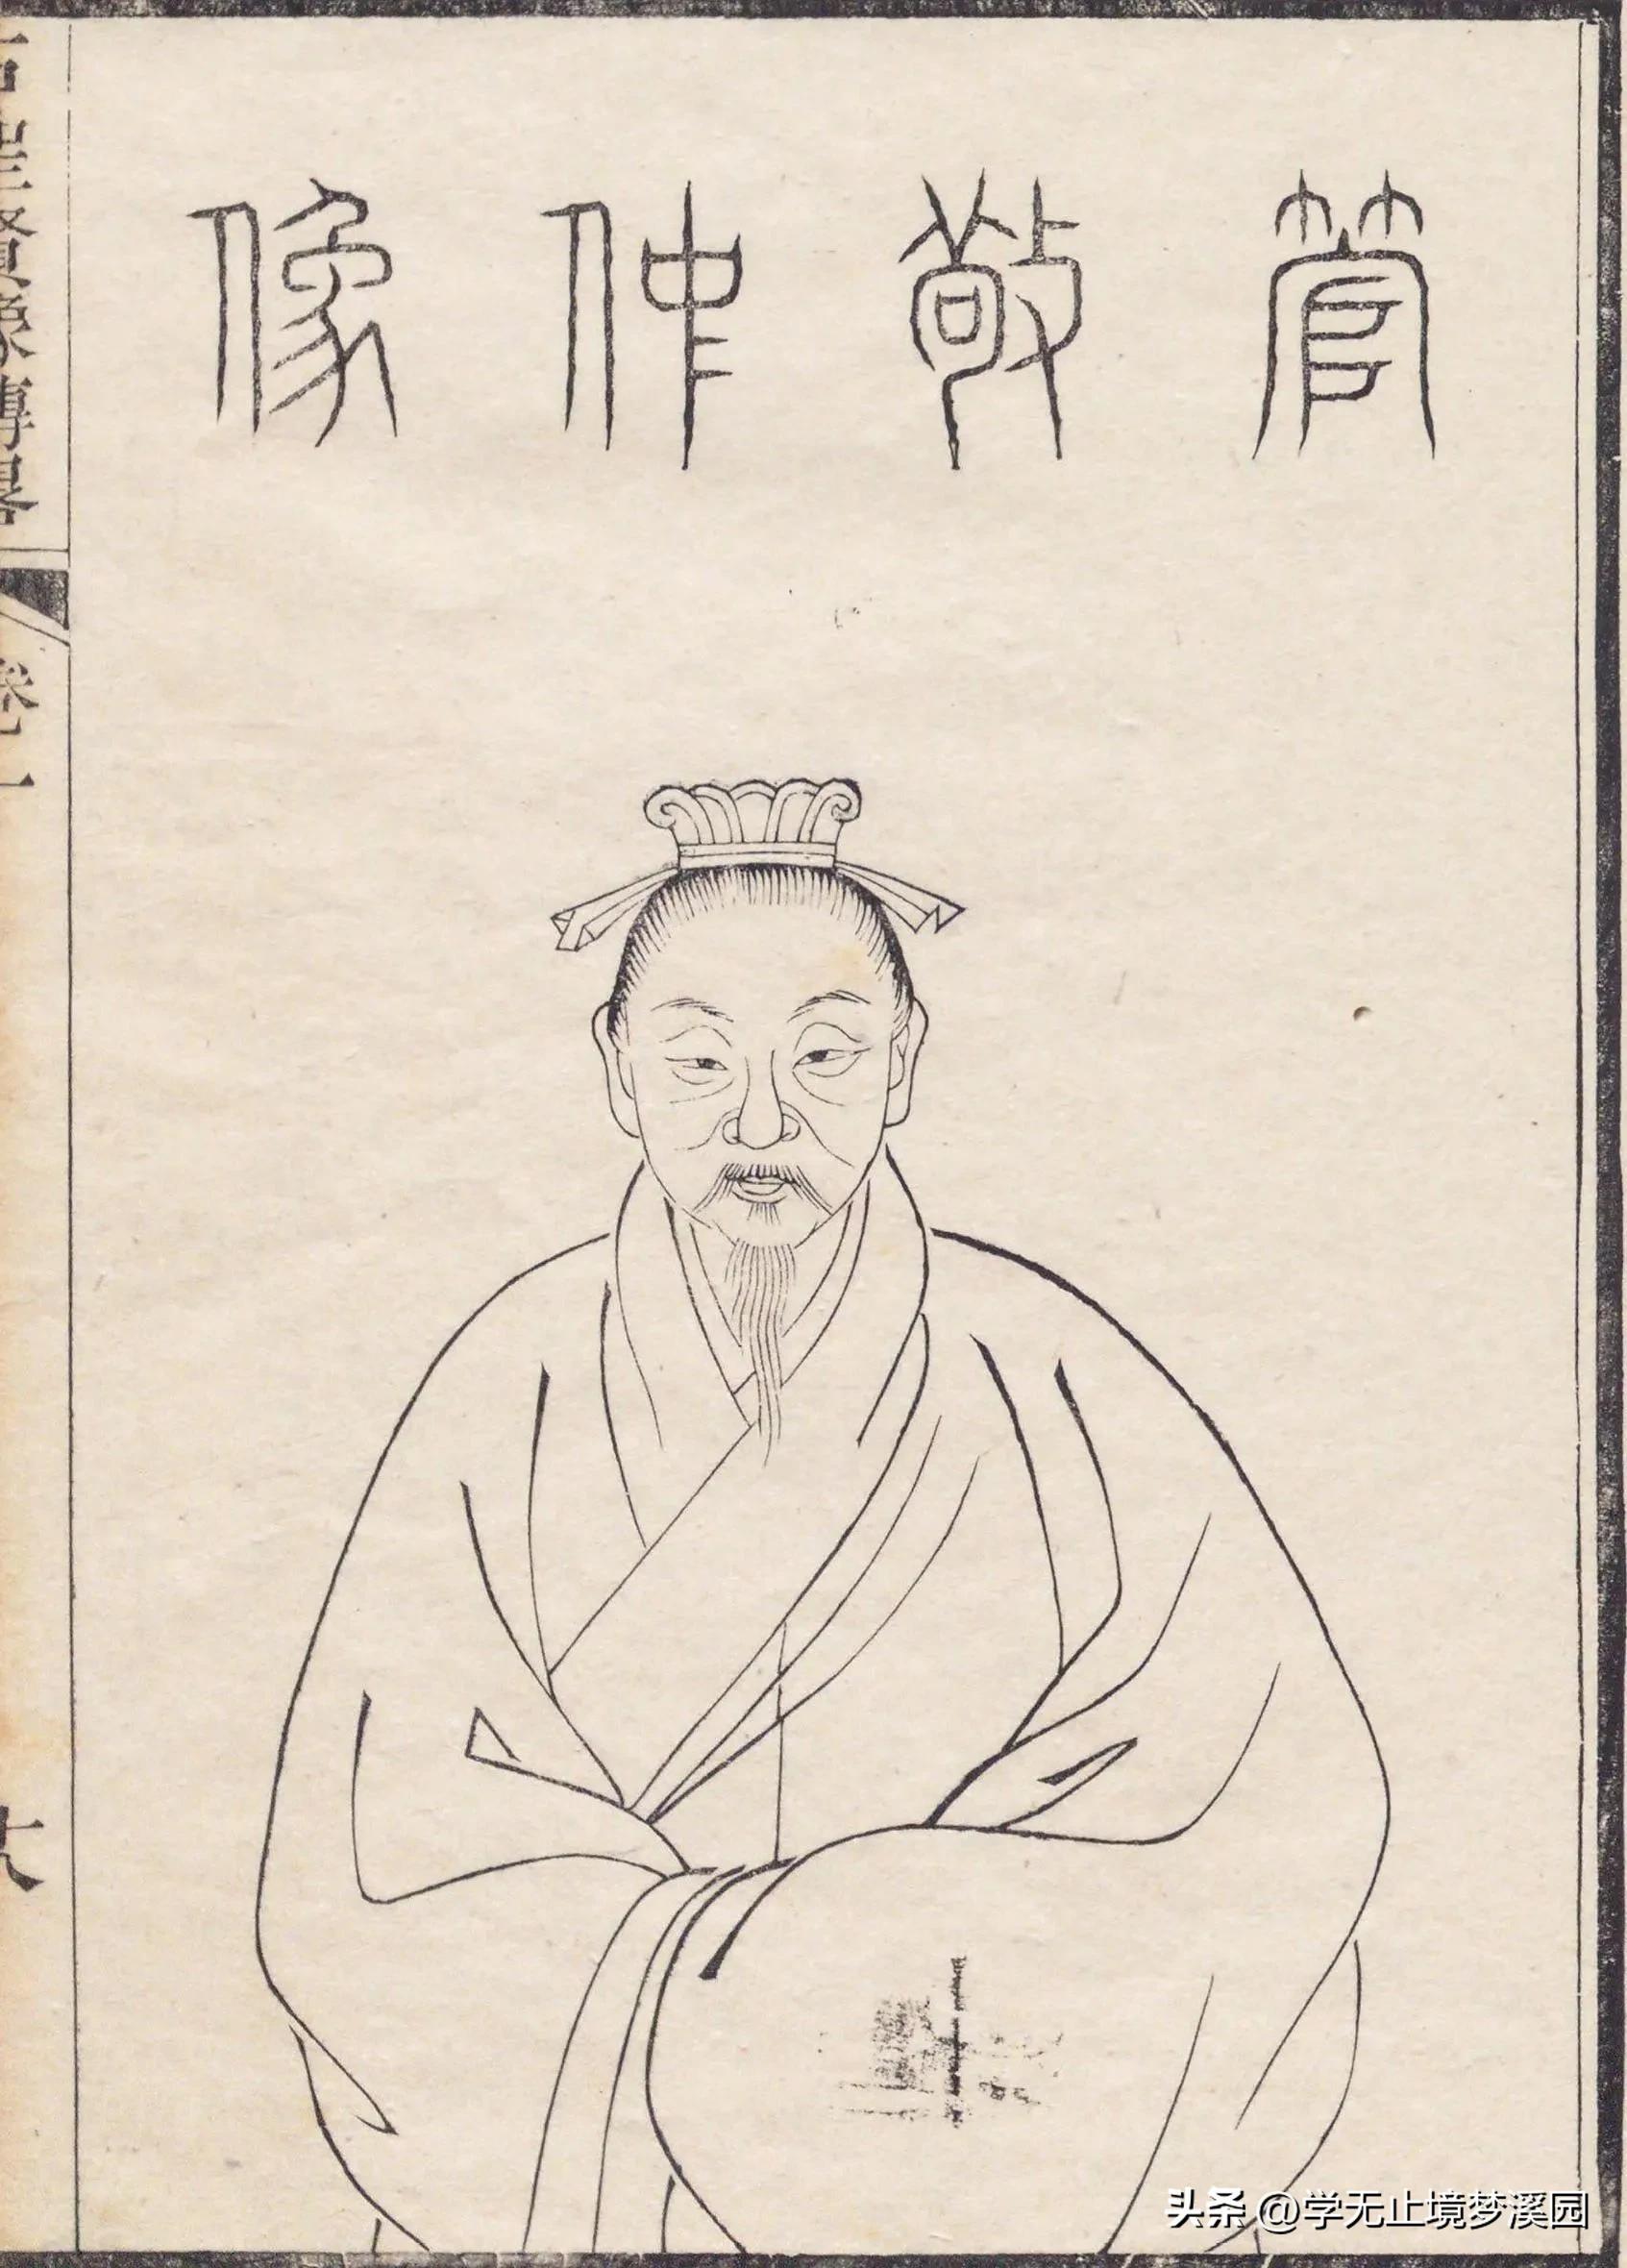 管敬仲像
古聖賢像傳畧
卷一
头条 @学无止境梦溪园